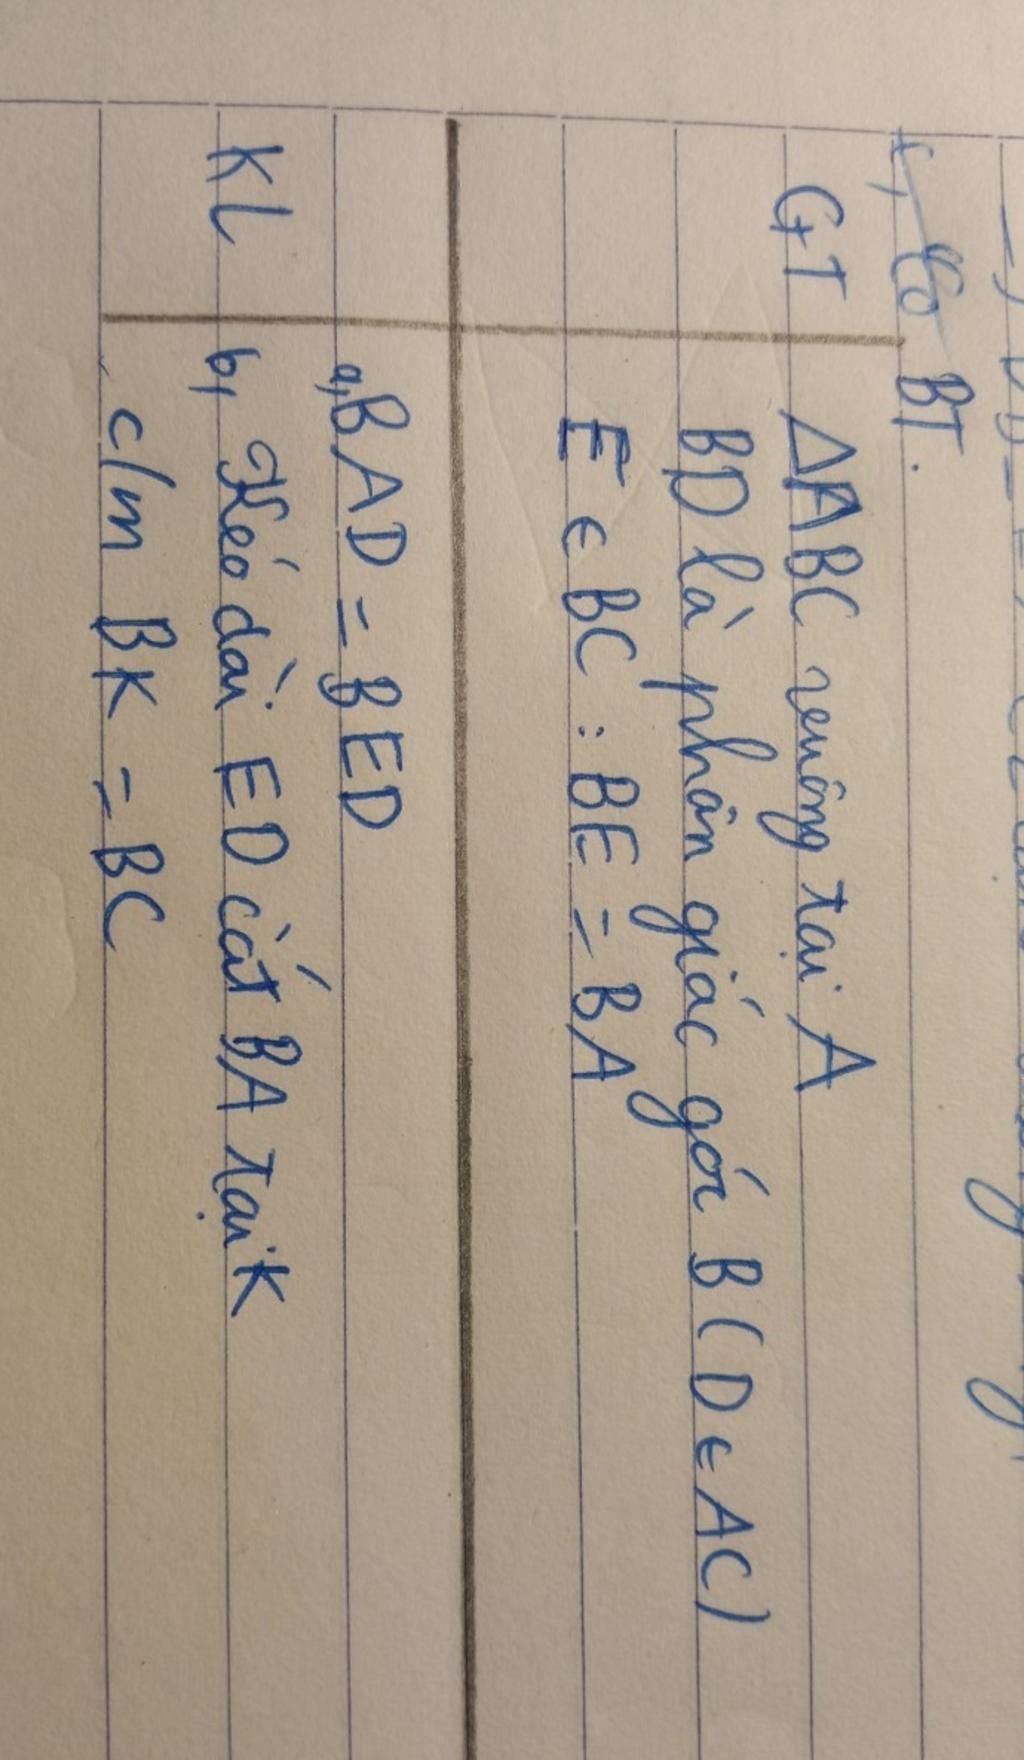 BT.
GT ΔABC vuông tại A
BD là phân giác góc B (D ∈ AC)
E ∈ BC : BE = BA
KL a, BAD = BED
b, Kéo dài ED cắt BA tại K
c/m BK = BC